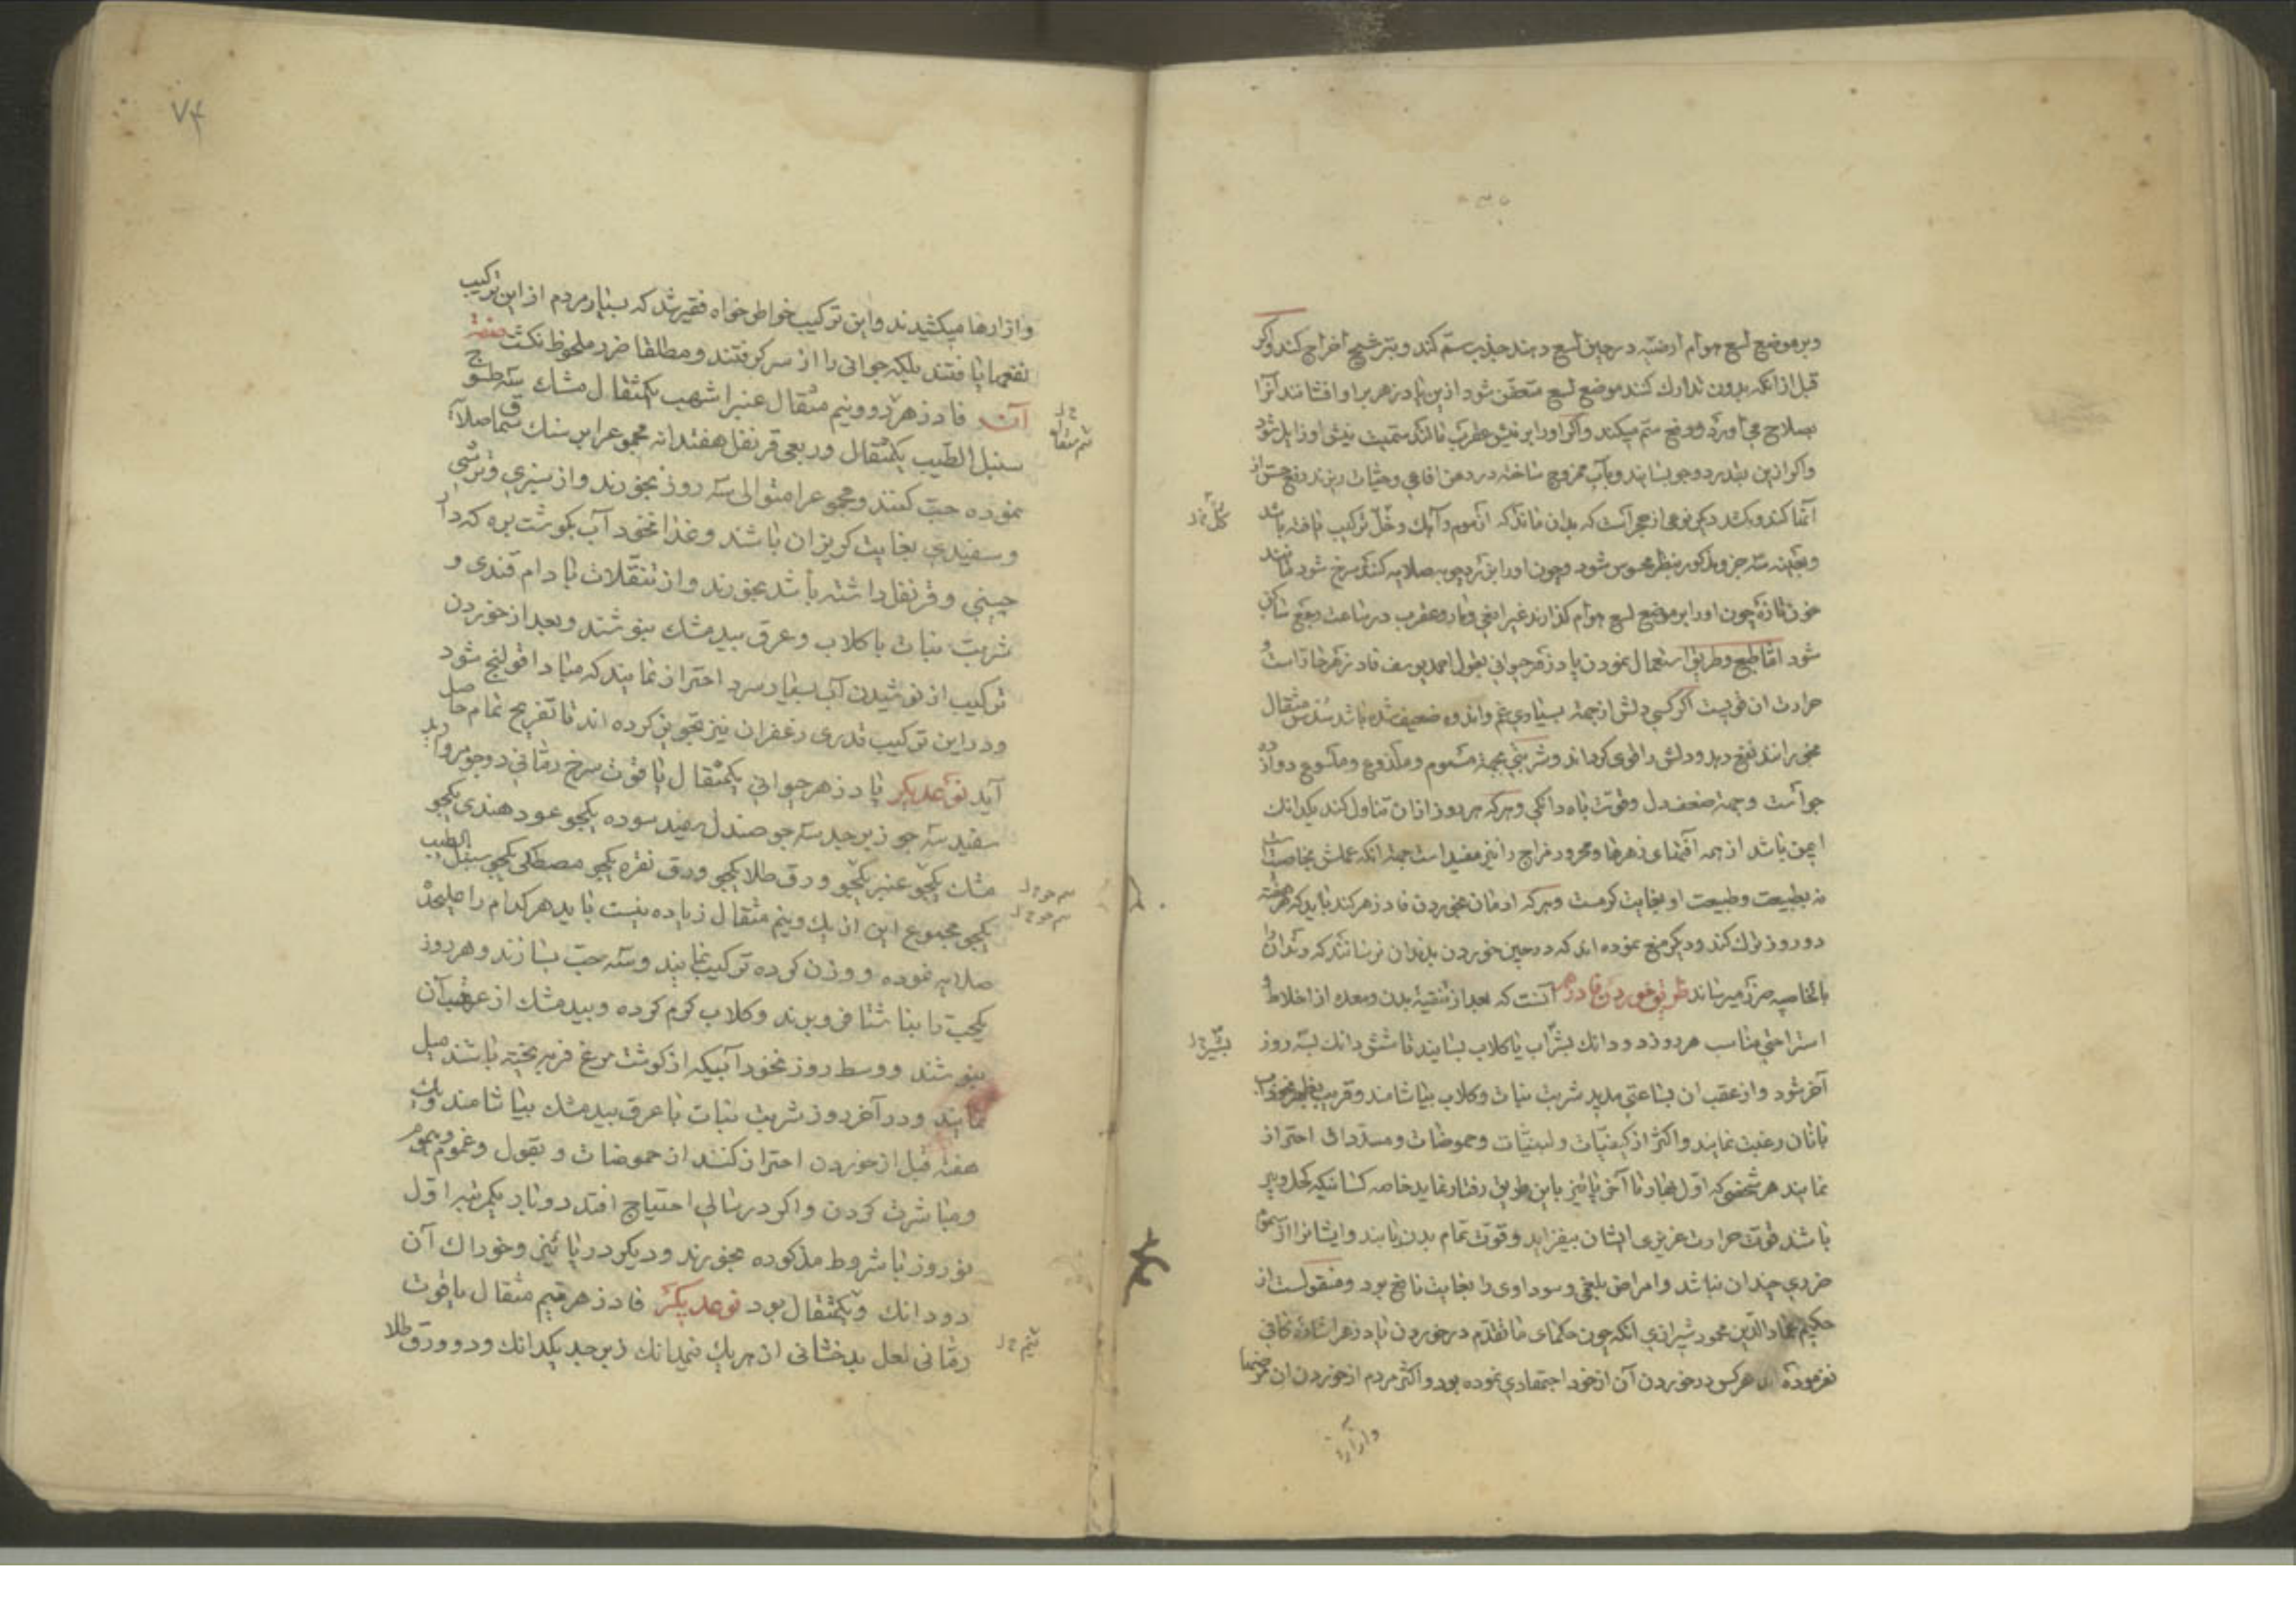 وبر موضع لسع هوام ارضیه در حین لسع دهند جذب ستم کند و بترشیح اخراج کند واکر
قبل از انکه بدون تدارك کنند موضع لسع متعفن شود ازین پادزهر بر او افشانند آنرا
بصلاح می آورد و دفع ستم میکند واکر او را بر نیش عقرب مالند سمیت نیش او زایل شود
واکر ازین بقدر دو جو بسایند و بآب ممزوج ساخته در دهن افاعی و حیات ریزند
آنها کند و نوعی از حجر آنست که بدان ماند که از موم و آهك و خل ترکیب یافته باشد
و بعینه سه جزو مذکور بنظر محسوس شود و چون او را بصلایه کنند سرخ شود مانند
خون تازه چون او را بر موضع لسع هوام کذارند غیر افعی و مار و عقرب در ساعت وجع ساکن
شود اما طبع و طریق استعمال نمودن پادزهر حیوانی بقول احمد یوسف فادزهر حار است و
حرارت ان قویست اکر کسی دلش از جهة بسیاری غم و اندوه ضعیف شده باشد سدس مثقال
بخورانند نفع دهد و دلش را قوی کرداند و شربتی بجهة مسموم و ملذوع و ملسوع دوازده
جو است و جهة ضعف دل و قوت باه دانکی و هرکه هر روز از ان تناول کند یکدانك
ایمن باشد از همه آفتهای زهرها و محرور مزاج را نیز مفید است جهة انکه عملش بخاصیت است
نه بطبیعت و طبیعت او بغایت کرمست و هرکه ادمان بخوردن فادزهر کند باید که هر هفته
دو روز ترك کند و دیکر منع نموده اند که در حین خوردن بدندان نرسانند که دندان را
بالخاصیه ضرر میرساند طریق خوردن فادزهر آنست که بعد از تنقیه بدن و معده از اخلاط و
استراحتی مناسب هر روز دو دانك بشراب یا کلاب بسایند تا شش دانك بسه روز
آخر شود و از عقب ان بساعتی مدید شربت نبات و کلاب بیاشامند و قریب بظهر نخوداب
با نان رغبت نمایند و اکثر از کیفیات و لبنیات و حموضات و مسددات احتراز
نمایند هر شخصی که اول بهار تا آخر پائیز باین طریق رفتار نماید خاصه کسانیکه کهل و پیر
باشند قوت حرارت غریزی ایشان بیفزاید و قوت تمام بدن یابند و ایشانرا از سموم
ضرری چندان نباشد و امراض بلغمی و سوداوی را بغایت نافع بود و منقولست از
حکیم عمادالدین محمود شیرازی انکه چون حکمای ما تقدم در خوردن پادزهر اشاره کافی
نفرموده اند هر کس در خوردن آن از خود اجتهادی نموده بود و اکثر مردم از خوردن ان
وآزارها
۷۴
وآزارها میکشیدند و این ترکیب خواطر خواه فقیر شد که بسیار مردم از این ترکیب
نفعها یافتند بلکه جوانی را از سر کرفتند و مطلقا ضرر ملحوظ نکشت صفة
آن فادزهر دو و نیم مثقال عنبر اشهب یکمثقال مشك سه طسوج
سنبل الطیب یکمثقال و ربعی قرنفل هفتدانه مجموع را بر سنك سماق صلایه
نموده حب کنند و مجموع را متوالی سه روز بخورند و از سبزی و ترشی
و سفیدی بغایت کریزان باشند و غذا نخود آب بکوشت بره که دار
چینی و قرنفل داشته باشد بخورند و از تنقلات بادام قندی و
شربت نبات با کلاب و عرق بیدمشك بنوشند و بعد از خوردن
ترکیب از نوشیدن آب بسیار سرد احتراز نمایند که مبادا قولنج شود
و در این ترکیب قدری زعفران نیز تجویز کرده اند تا تفریح تمام حاصل
آید نوعدیکر پادزهر حیوانی یکمثقال یاقوت سرخ رمانی دوجو مروارید
سفید سه جو زبرجد سه جو صندل سفید سوده یکجو عود هندی یکجو
مشك یکجو عنبر یکجو ورق طلا یکجو ورق نقره یکجو مصطکی یکجو سنبل الطیب
یکجو مجموع این از یك و نیم مثقال زیاده نیست باید هر کدام را علیحده
صلایه نموده و وزن کرده ترکیب نمایند و سه حب بسازند و هر روز
یکحب را بناشتا فرو برند و کلاب کرم کرده و بیدمشك از عقب آن
بنوشند و وسط روز نخود آبیکه از کوشت مرغ فربه پخته باشند میل
نمایند و در آخر روز شربت نبات با عرق بیدمشك بیاشامند و یك
هفته قبل از خوردن احتراز کنند از حموضات و بقول و غموم و هموم
و مباشرت کردن و اکر در سالی احتیاج افتد دو بار یکمرتبه اول
نوروز با شروط مذکوره بخورند و دیکر در پائیز و خوراك آن
دو دانك و یکمثقال بود نوعدیکر فادزهر نیم مثقال یاقوت
رمانی لعل بدخشانی از هر یك نیمدانك زبرجد یکدانك و دو ورق طلا